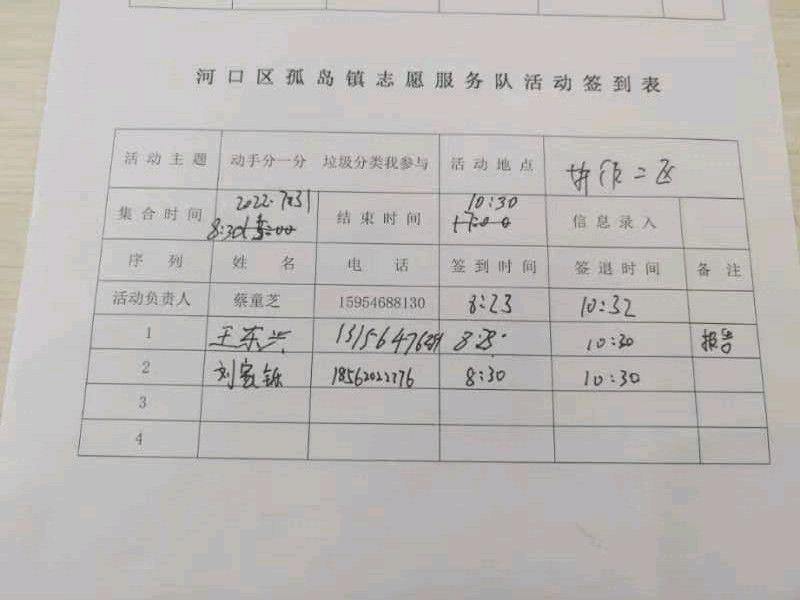 河口区孤岛镇志愿服务队活动签到表
活动主题 动手分一分 垃圾分类我参与 活动地点 二区
集合时间 2022.7月31 8:30 结束时间 10:30 17:00 信息录入
序列 姓名 电话 签到时间 签退时间 备注
活动负责人 蔡童芝 15954688130 8:23 10:32
1 王东兴 10:30 报告
2 刘家铄 18562022276 8:30 10:30
3
4